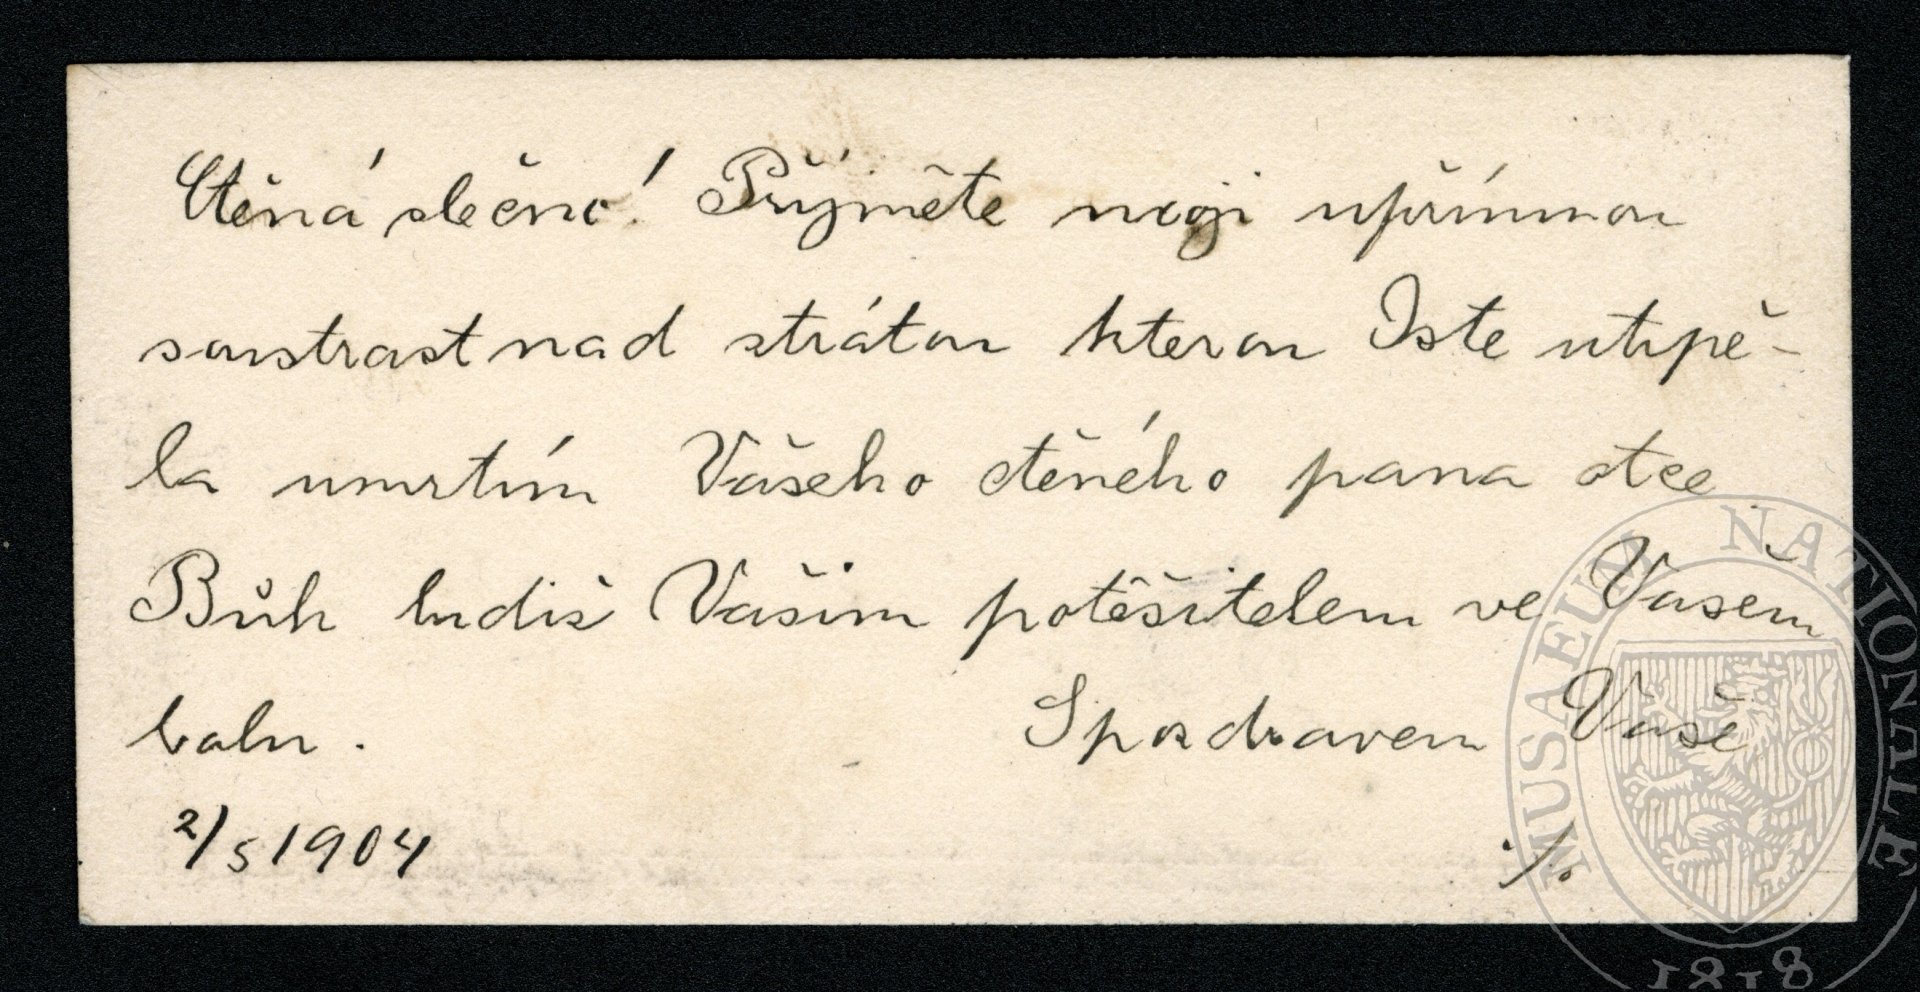 Ctěná slečno! Přijměte moji upřímnou
soustrast nad ztrátou kterou Jste utrpě-
la umrtím Vašeho ctěného pana otce
Bůh budiž Vašim potěšitelem ve Vašem
bolu. S pozdravem Vaše
2/5 1904 ./.
MUSAEUM NATIONALE
1818